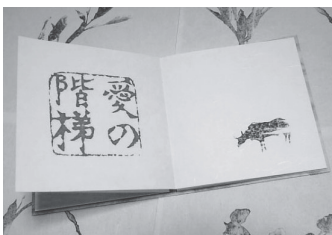 愛の
階梯